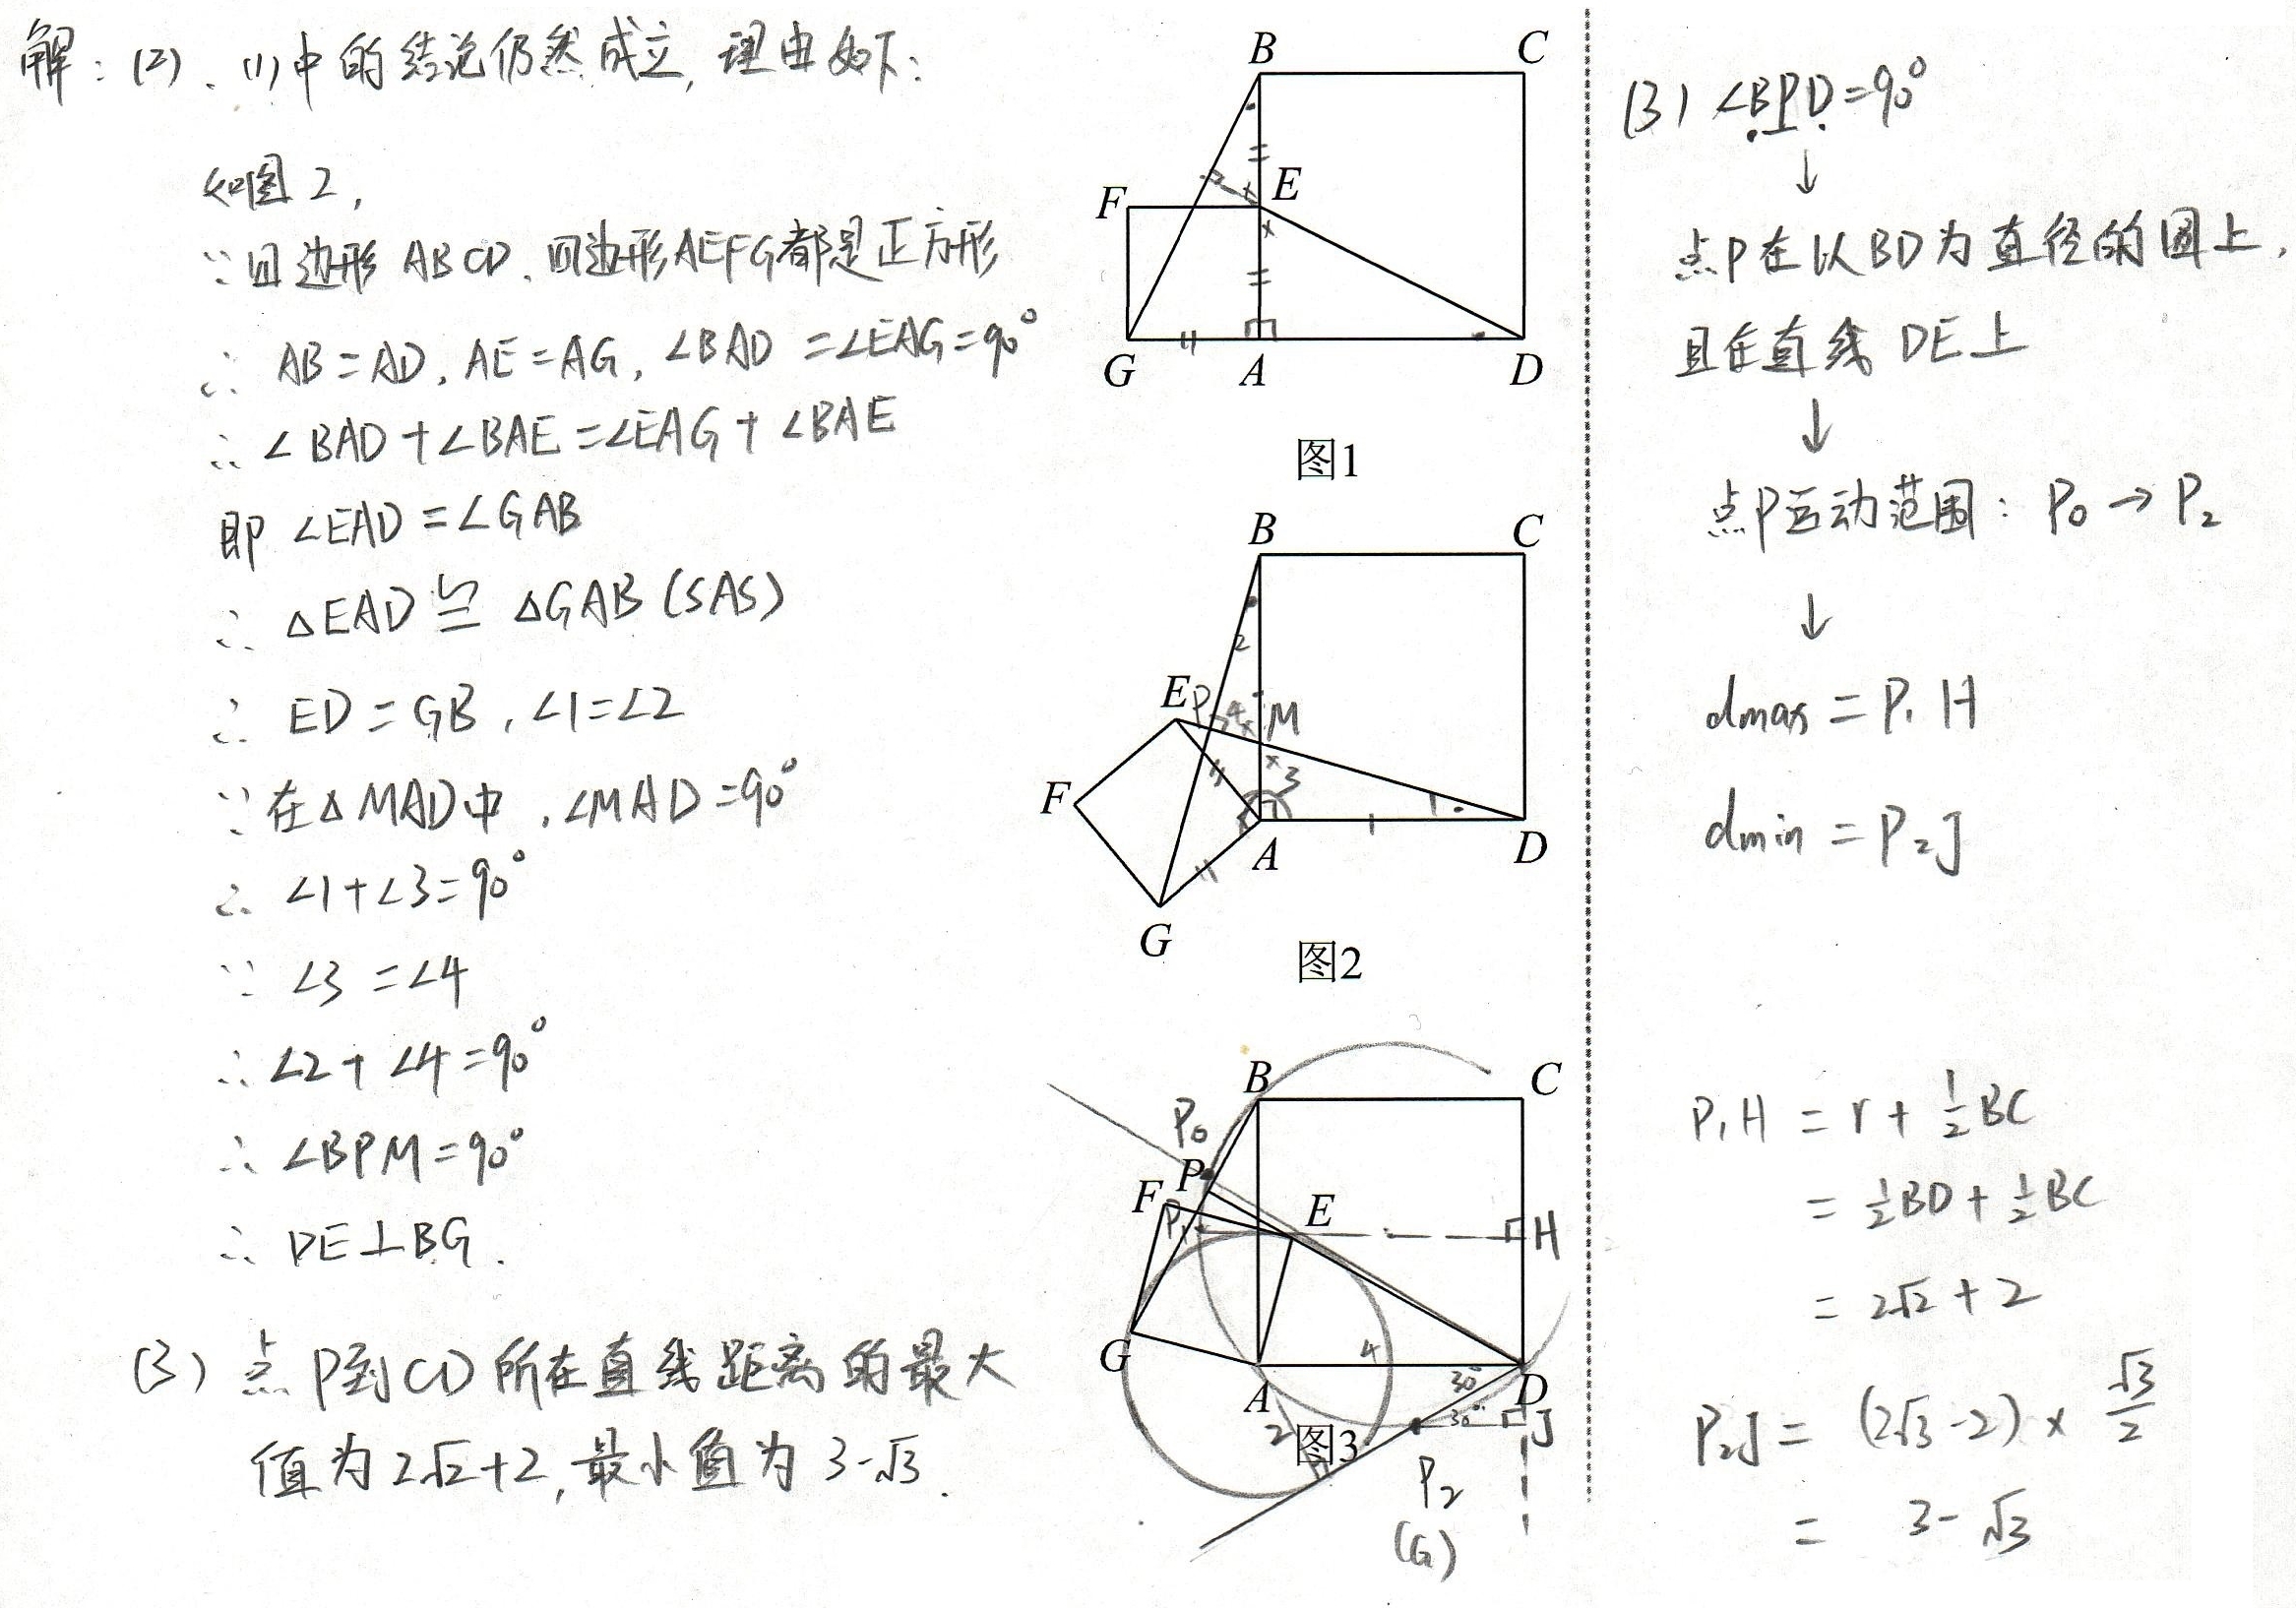 解：(2)、(1)中的结论仍然成立, 理由如下:
如图2,
∵四边形ABCD、四边形AEFG都是正方形
∴ AB=AD, AE=AG, ∠BAD =∠EAG=90°
∴ ∠BAD+∠BAE=∠EAG+∠BAE
即 ∠EAD=∠GAB
∴ △EAD≌△GAB(SAS)
∴ ED=GB, ∠1=∠2
∵在△MAD中, ∠MAD=90°
∴ ∠1+∠3=90°
∵ ∠3=∠4
∴ ∠2+∠4=90°
∴ ∠BPM=90°
∴ DE⊥BG.
(3) 点P到CD所在直线距离的最大
值为2√2+2, 最小值为3-√3.
B C
F E
G A D
图1
B C
2
E P 4 M
F 3 1
A D
G
图2
B C
P₀
F P E
P₁ H
G 4 30°
A D
30° J
2 图3
P₂
(G)
(3) ∠BPD=90°
↓
点P在以BD为直径的圆上,
且在直线DE上
↓
点P运动范围: P₀→P₂
↓
dmax=P₁H
dmin=P₂J
P₁H=r+½BC
=½BD+½BC
=2√2+2
P₂J=(2√3-2)×√3/2
= 3-√3